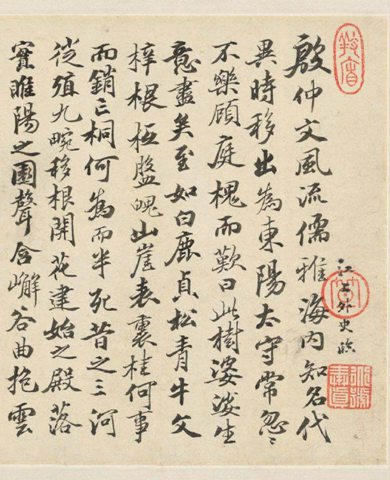 殷仲文風流儒雅海内知名代
異時移出為東陽太守常忽〻
不樂顧庭槐而歎曰此樹婆娑生
意盡矣至如白鹿貞松青牛文
梓根柢盤魄山崖表裏桂何事
而銷亡桐何為而半死昔之三河
從殖九畹移根開花建始之殿落
實睢陽之園聲含嶰谷曲抱雲
江上外史